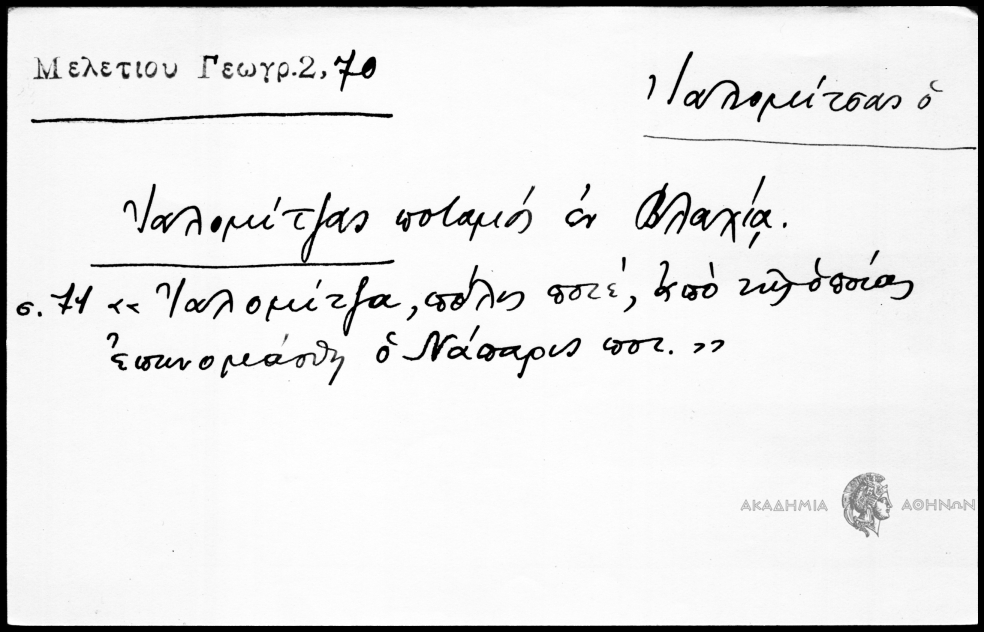 Μελετίου Γεωγρ. 2, 70
Ἰαλομίτσας ὁ
Ἰαλομίτζας ποταμός ἐν Βλαχίᾳ.
σ. 71 « Ἰαλομίτζα, πόλις ποτέ, ἀπό τῆς ὁποίας
ἐπωνομάσθη ὁ Νάπαρις ποτ. »
ΑΚΑΔΗΜΙΑ ΑΘΗΝΩΝ